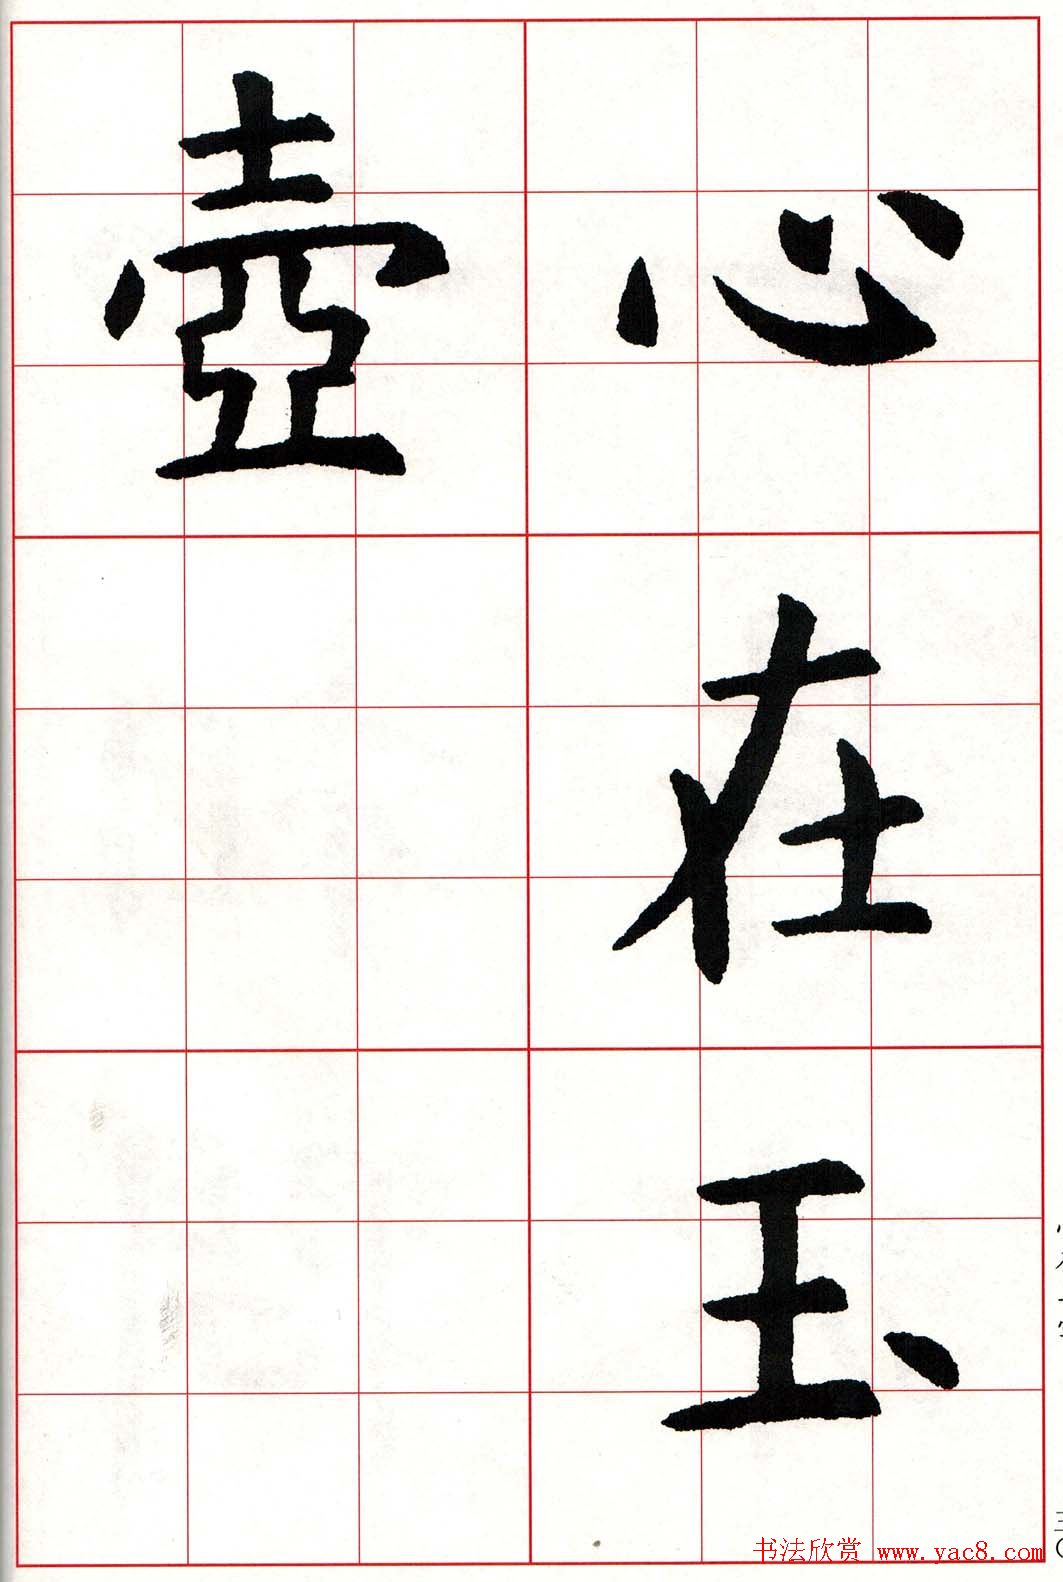 心在玉
壺
书法欣赏 www.yac8.com